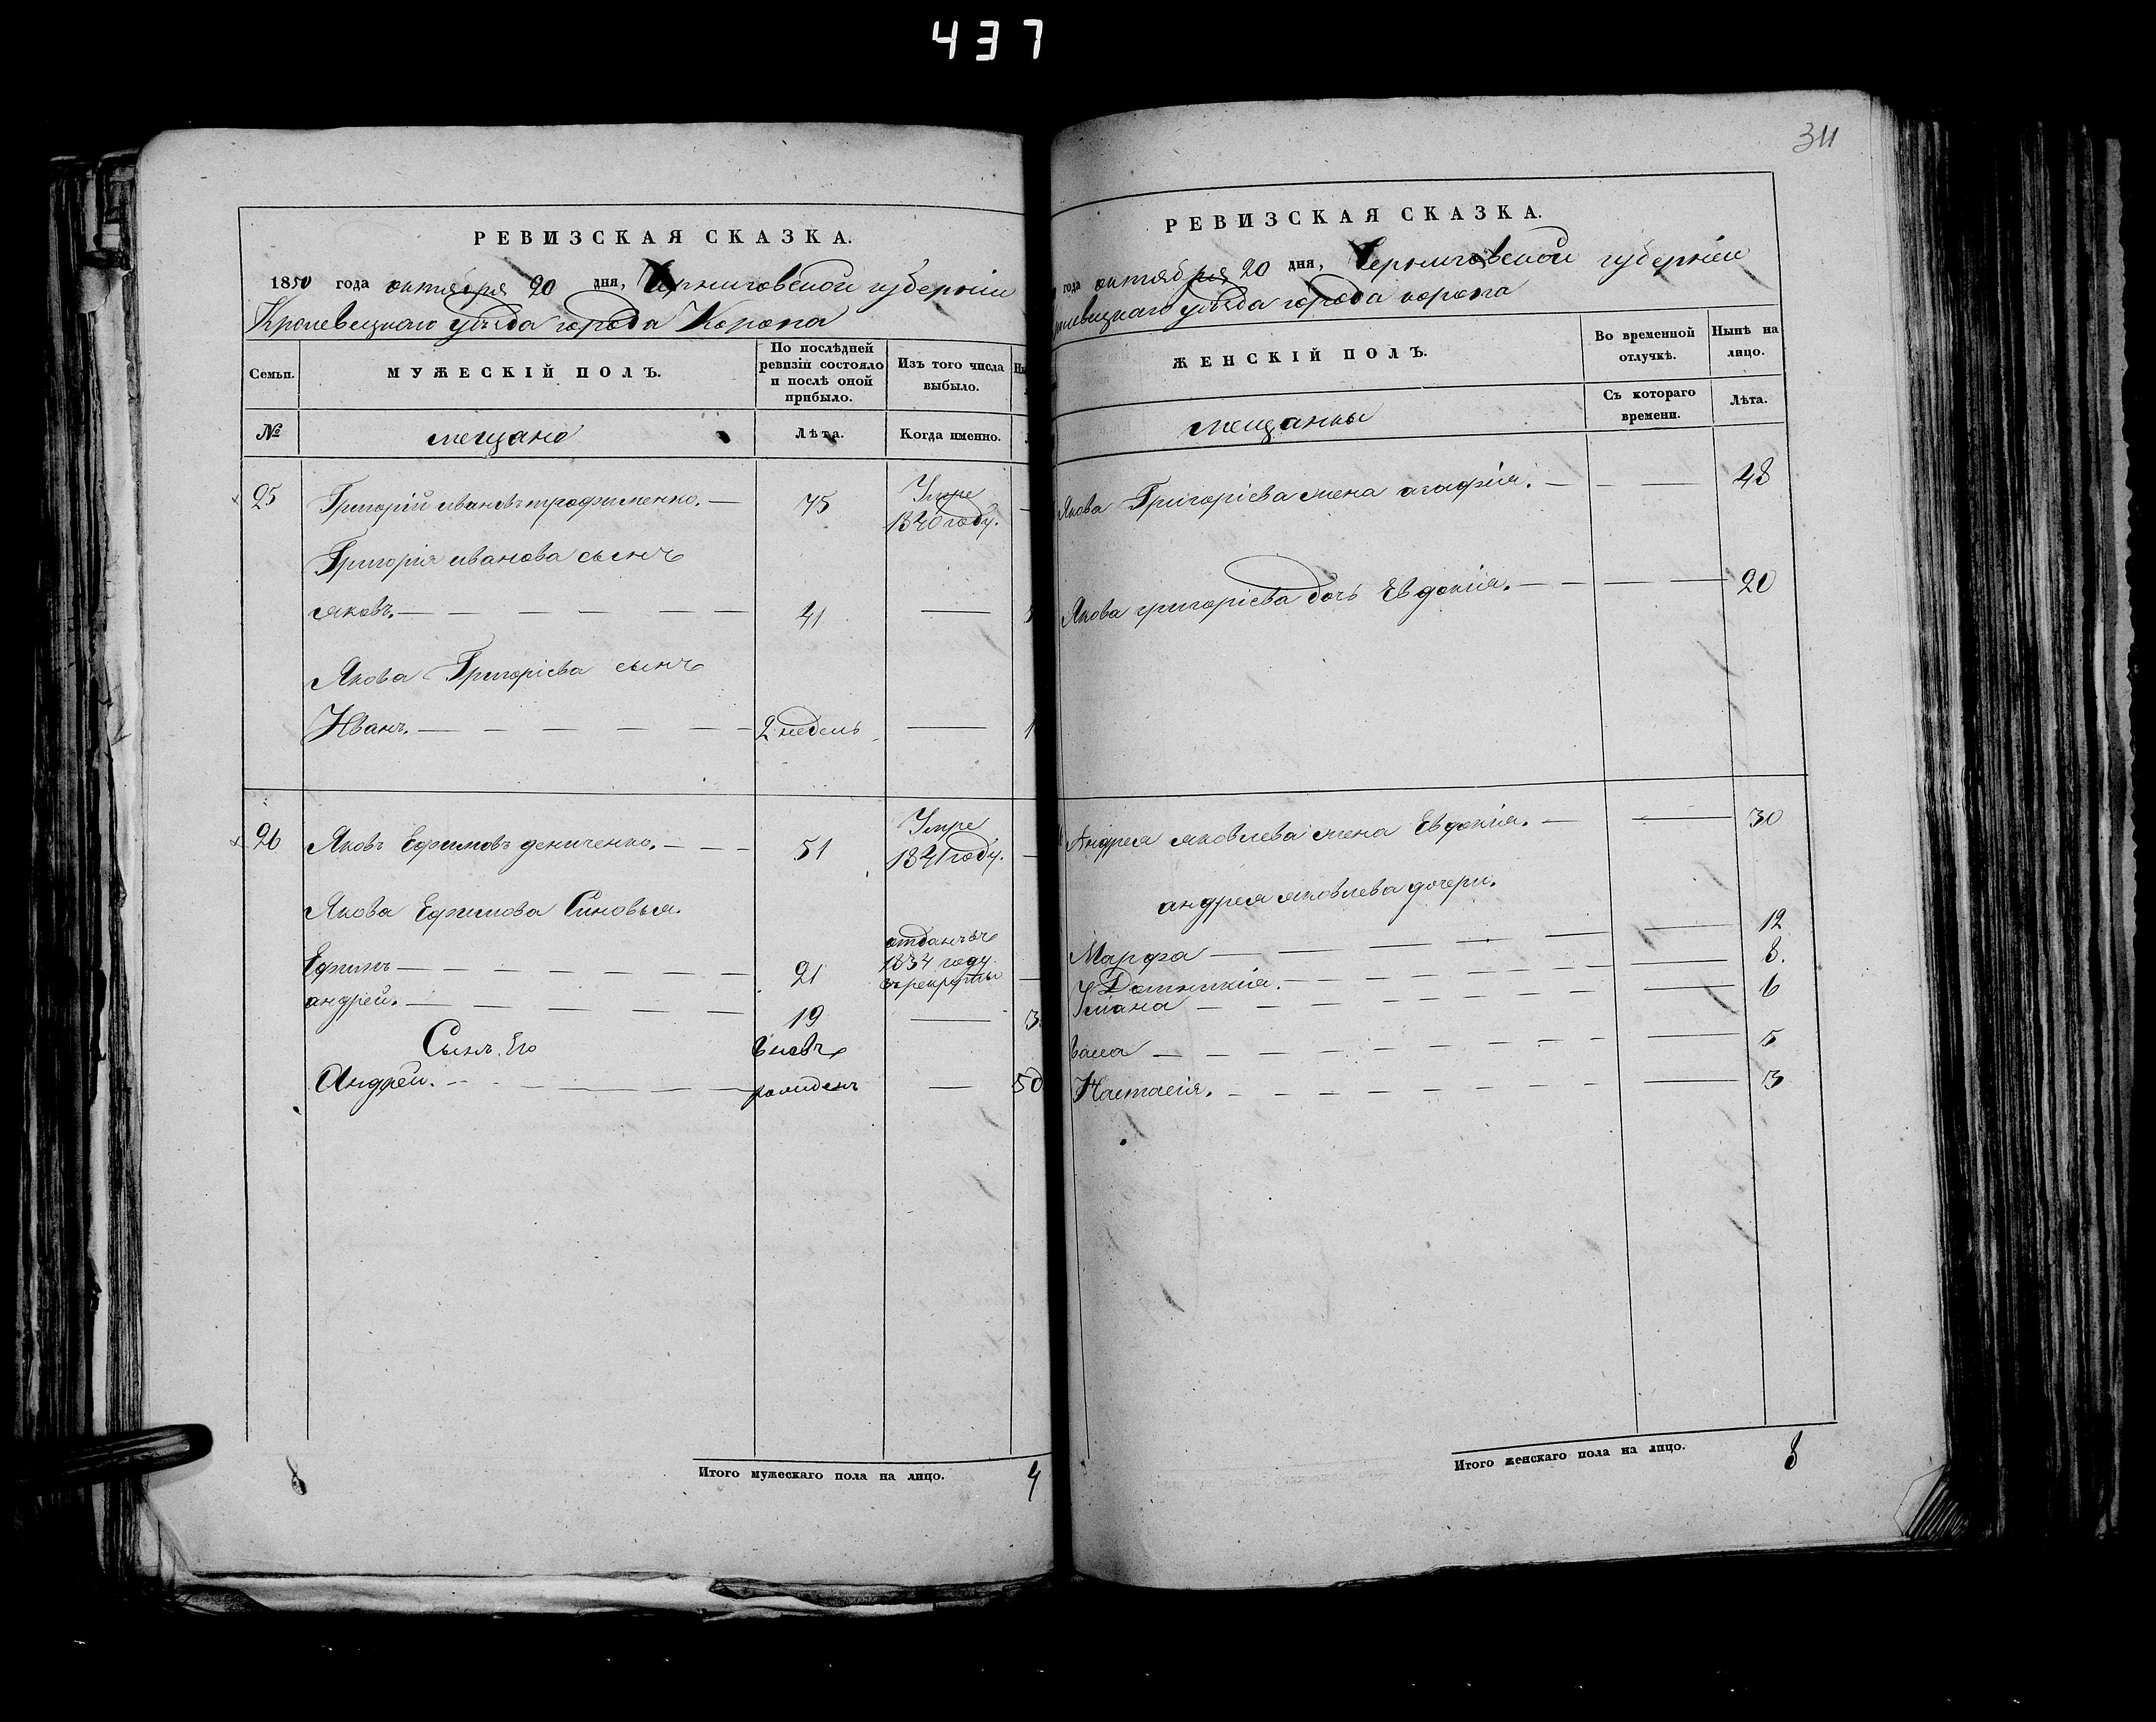 437
РЕВИЗСКАЯ СКАЗКА.
1850 года октября 20 дня, Черниговской губерніи
Кролевецкаго уѣзда города Коропа
Семьи.
МУЖЕСКІЙ ПОЛЪ.
По послѣдней
ревизіи состояло
и послѣ оной
прибыло.
Изъ того числа
выбыло.
№
мещане
Лѣта.
Когда именно.
25 Григорій ивановъ трофименко. — 75 Умре
1840 году.
Григорія иванова сынъ
яковъ. — 41 —
Якова Григоріева сынъ
Иванъ. — 2 недель —
26 Яковъ Ефимовъ дениченко. — 51 Умре
1841 году.
Якова Ефимова Синовья.
Ефимъ — 21 отданъ въ
1834 году
въ рекруты
андрей. — 19 — 3
Сынъ Его вновь
Андрей. — рожденъ — 50
Итого мужескаго пола на лицо. 4
8
311
РЕВИЗСКАЯ СКАЗКА.
года октября 20 дня, Черниговской губерніи
уѣзда города коропа
ЖЕНСКІЙ ПОЛЪ.
Во временной
отлучкѣ.
Нынѣ на
лицо.
мещанки
Съ котораго
времени.
Лѣта.
Якова Григоріева жена агафія. — 48
Якова григоріева дочь Евдокія. — 20
Андрея яковлева жена Евдокія. — 30
андрея яковлева дочери.
Марфа — 12
Домникія. — 8.
Уліана — 6
— 5
Настасія. — 3
Итого женскаго пола на лицо. 8